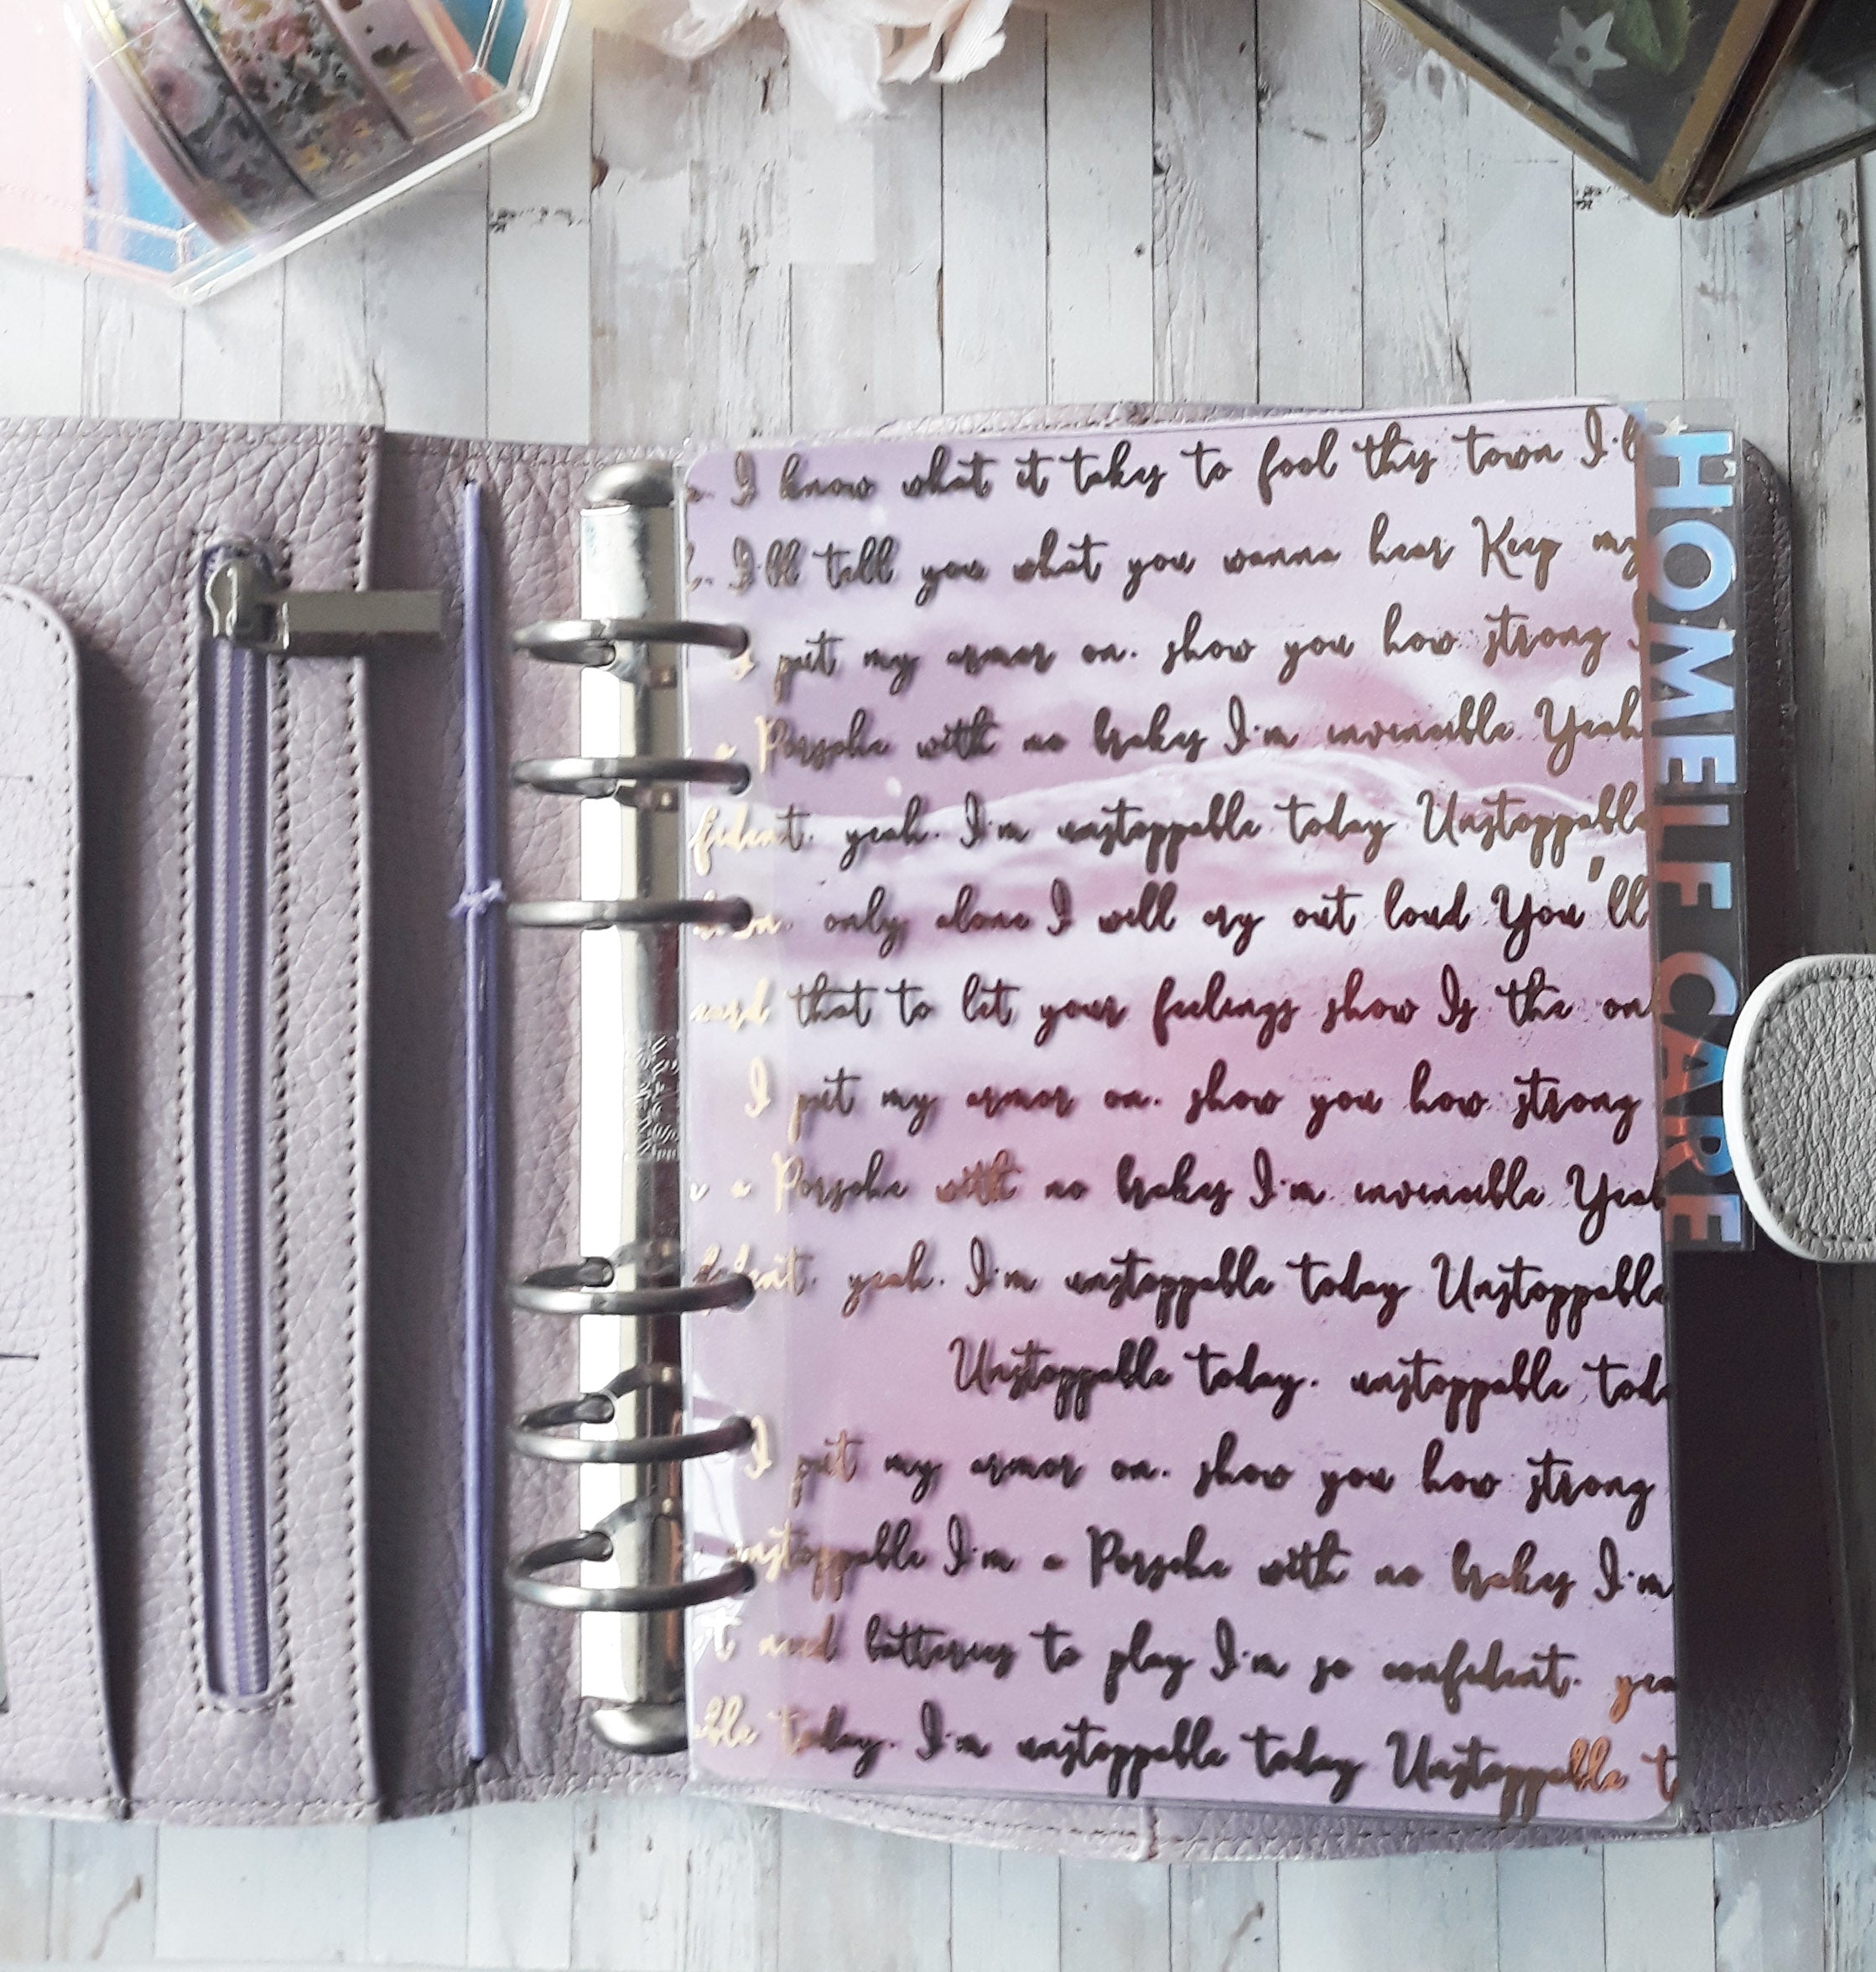 I know what it takes to fool this town I'll
I'll tell you what you wanna hear Keep my
I put my armor on. show you how strong
a Porsche with no brakes I'm invincible Yeah
fident. yeah. I'm unstoppable today Unstoppable
down. only alone I will cry out loud You'll
hard that to let your feelings show Is the on
I put my armor on. show you how strong
e a Porsche with no brakes I'm invincible Yeah
fident. yeah. I'm unstoppable today Unstoppable
Unstoppable today. unstoppable toda
I put my armor on. show you how strong
unstoppable I'm a Porsche with no brakes I'm
't need batteries to play I'm so confident. yea
able today. I'm unstoppable today Unstoppable t
HOME
LF CARE